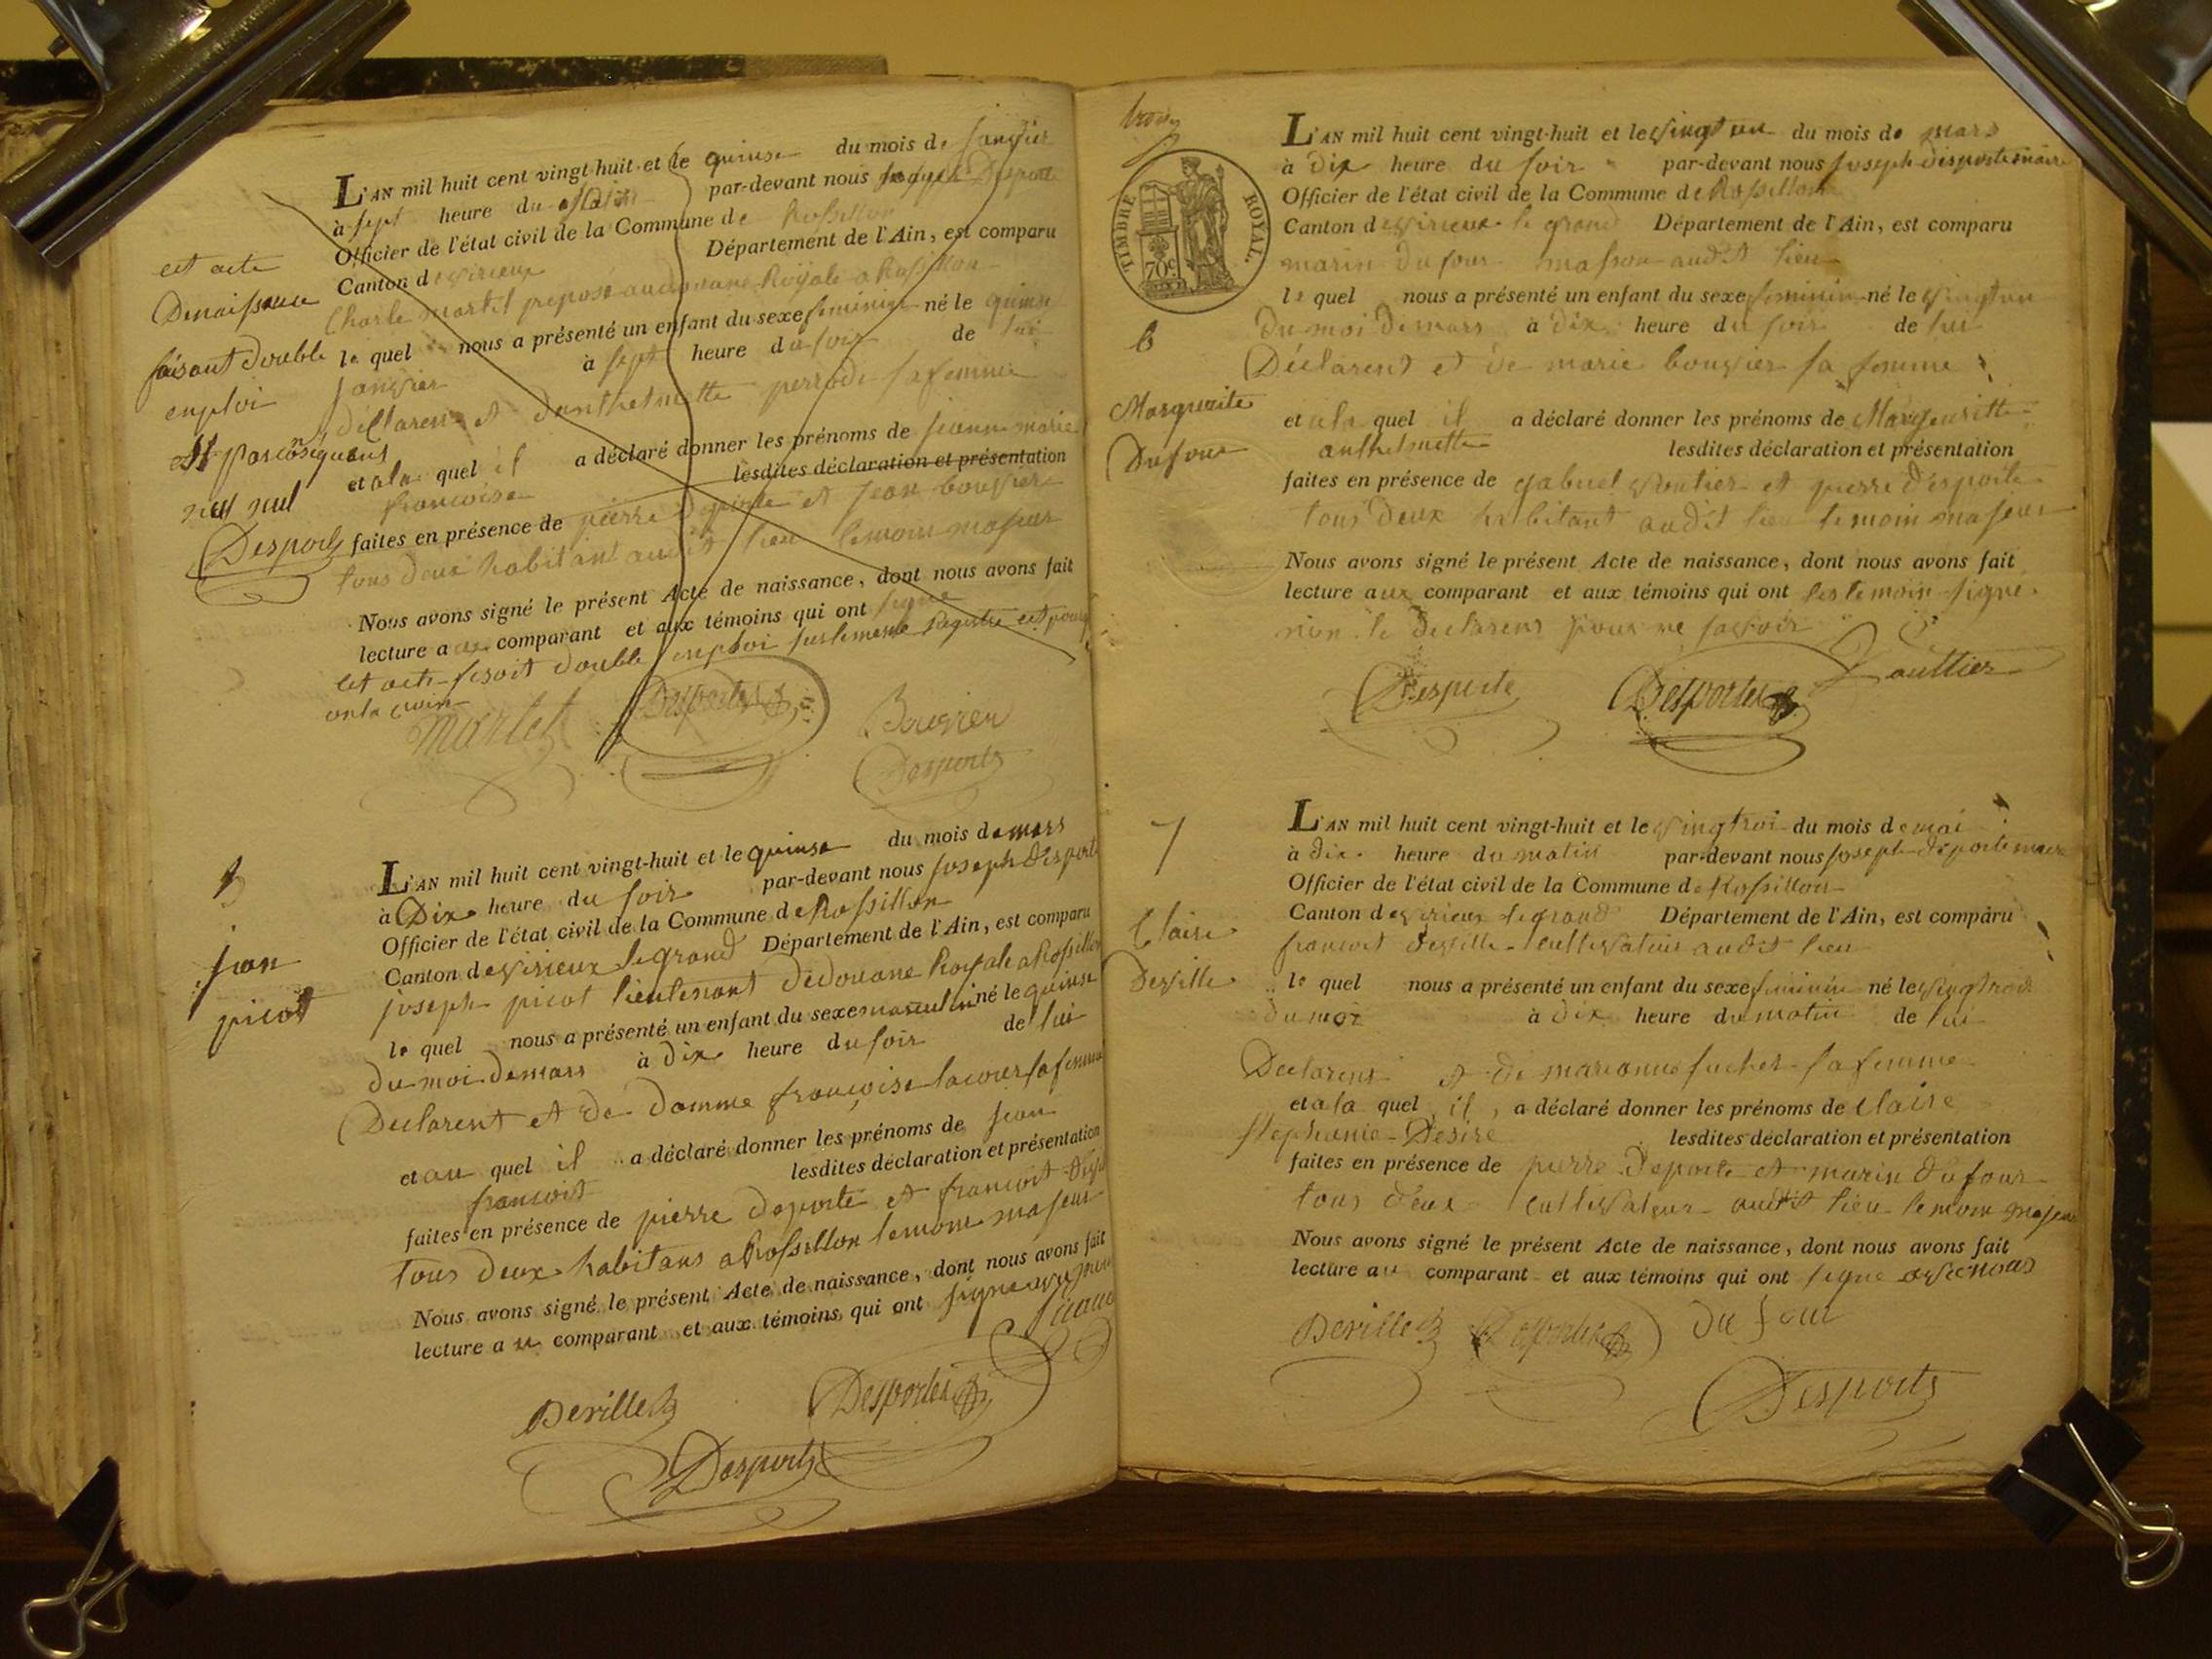 cet acte
Denaissance
faisant double
emploi
est par conséquent
nul
Desports
L'AN mil huit cent vingt-huit et le quinse du mois de Janvier
à sept heure du matin par-devant nous Joseph Desporte
Officier de l'état civil de la Commune de Rossillon
Canton de virieux Département de l'Ain, est comparu
Charle martel preposé au douane Royale a Rossillon
le quel nous a présenté un enfant du sexe feminin né le quinse
Janvier à sept heure du soir de lui
déclarent et danthelmette perrode sa femme
et a la quel il a déclaré donner les prénoms de jeanne marie
francoise lesdites déclaration et présentation
faites en présence de pierre Deporte et jean bouvier
tous deux habitant audit lieu temoin majeur
Nous avons signé le présent Acte de naissance, dont nous avons fait
lecture aux comparant et aux témoins qui ont signé
cet acte fesoit double emploi sur le meme registre cest pourq
on la
Martel Desportes Bouvier
Desports
5
jean
picot
L'AN mil huit cent vingt-huit et le quinse du mois de mars
à Dix heure du soir par-devant nous Joseph desporte
Officier de l'état civil de la Commune de Rossillon
Canton de virieux legrand Département de l'Ain, est comparu
joseph picot lieutenant dedouane Royale a Rossillon
le quel nous a présenté un enfant du sexe masculin né le quinse
du moi de mars à dix heure du soir de lui
Declarent et de damme françoise lacour sa femme
et au quel il a déclaré donner les prénoms de jean
francoit lesdites déclaration et présentation
faites en présence de pierre deporte et francoit
tous deux habitans a Rossillon temoin majeur
Nous avons signé le présent Acte de naissance, dont nous avons fait
lecture au comparant et aux témoins qui ont signe
Deville Desportes
Desports
trois
TIMBRE ROYAL.
70c
6
Marguerite
Dufour
L'AN mil huit cent vingt-huit et le vingt un du mois de mars
à Dix heure du soir par-devant nous Joseph desporte maire
Officier de l'état civil de la Commune de Rossillon
Canton de virieux le grand Département de l'Ain, est comparu
marin dufour masson audit lieu
le quel nous a présenté un enfant du sexe feminin né le vingt un
Du moi de mars à dix heure du soir de lui
Déclarent et de marie bouvier sa femme
et a la quel il a déclaré donner les prénoms de Margeuritte
anthelmette lesdites déclaration et présentation
faites en présence de gabriel goutier et pierre desporte
tous deux habitant audit lieu temoin majeur
Nous avons signé le présent Acte de naissance, dont nous avons fait
lecture aux comparant et aux témoins qui ont les temoin signe
non le declarent pour ne savoir
Desporte Desportes Gauttier
7
Claire
Deville
L'AN mil huit cent vingt-huit et le vingtroi du mois de mai
à dix heure du matin par-devant nous joseph deporte maire
Officier de l'état civil de la Commune de Rossillon
Canton de virieux legrand Département de l'Ain, est comparu
francoit deville cultivateur audit lieu
le quel nous a présenté un enfant du sexe feminin né le vingtroi
du moi à dix heure du matin de lui
Declarent et de marianne fuchet sa femme
et a la quel il a déclaré donner les prénoms de Claire
Stephanie Desire lesdites déclaration et présentation
faites en présence de pierre deporte et marin dufour
tous deux cultivateur audit lieu temoin majeur
Nous avons signé le présent Acte de naissance, dont nous avons fait
lecture au comparant et aux témoins qui ont signe avec nous
Deville Desportes Du four
Desports